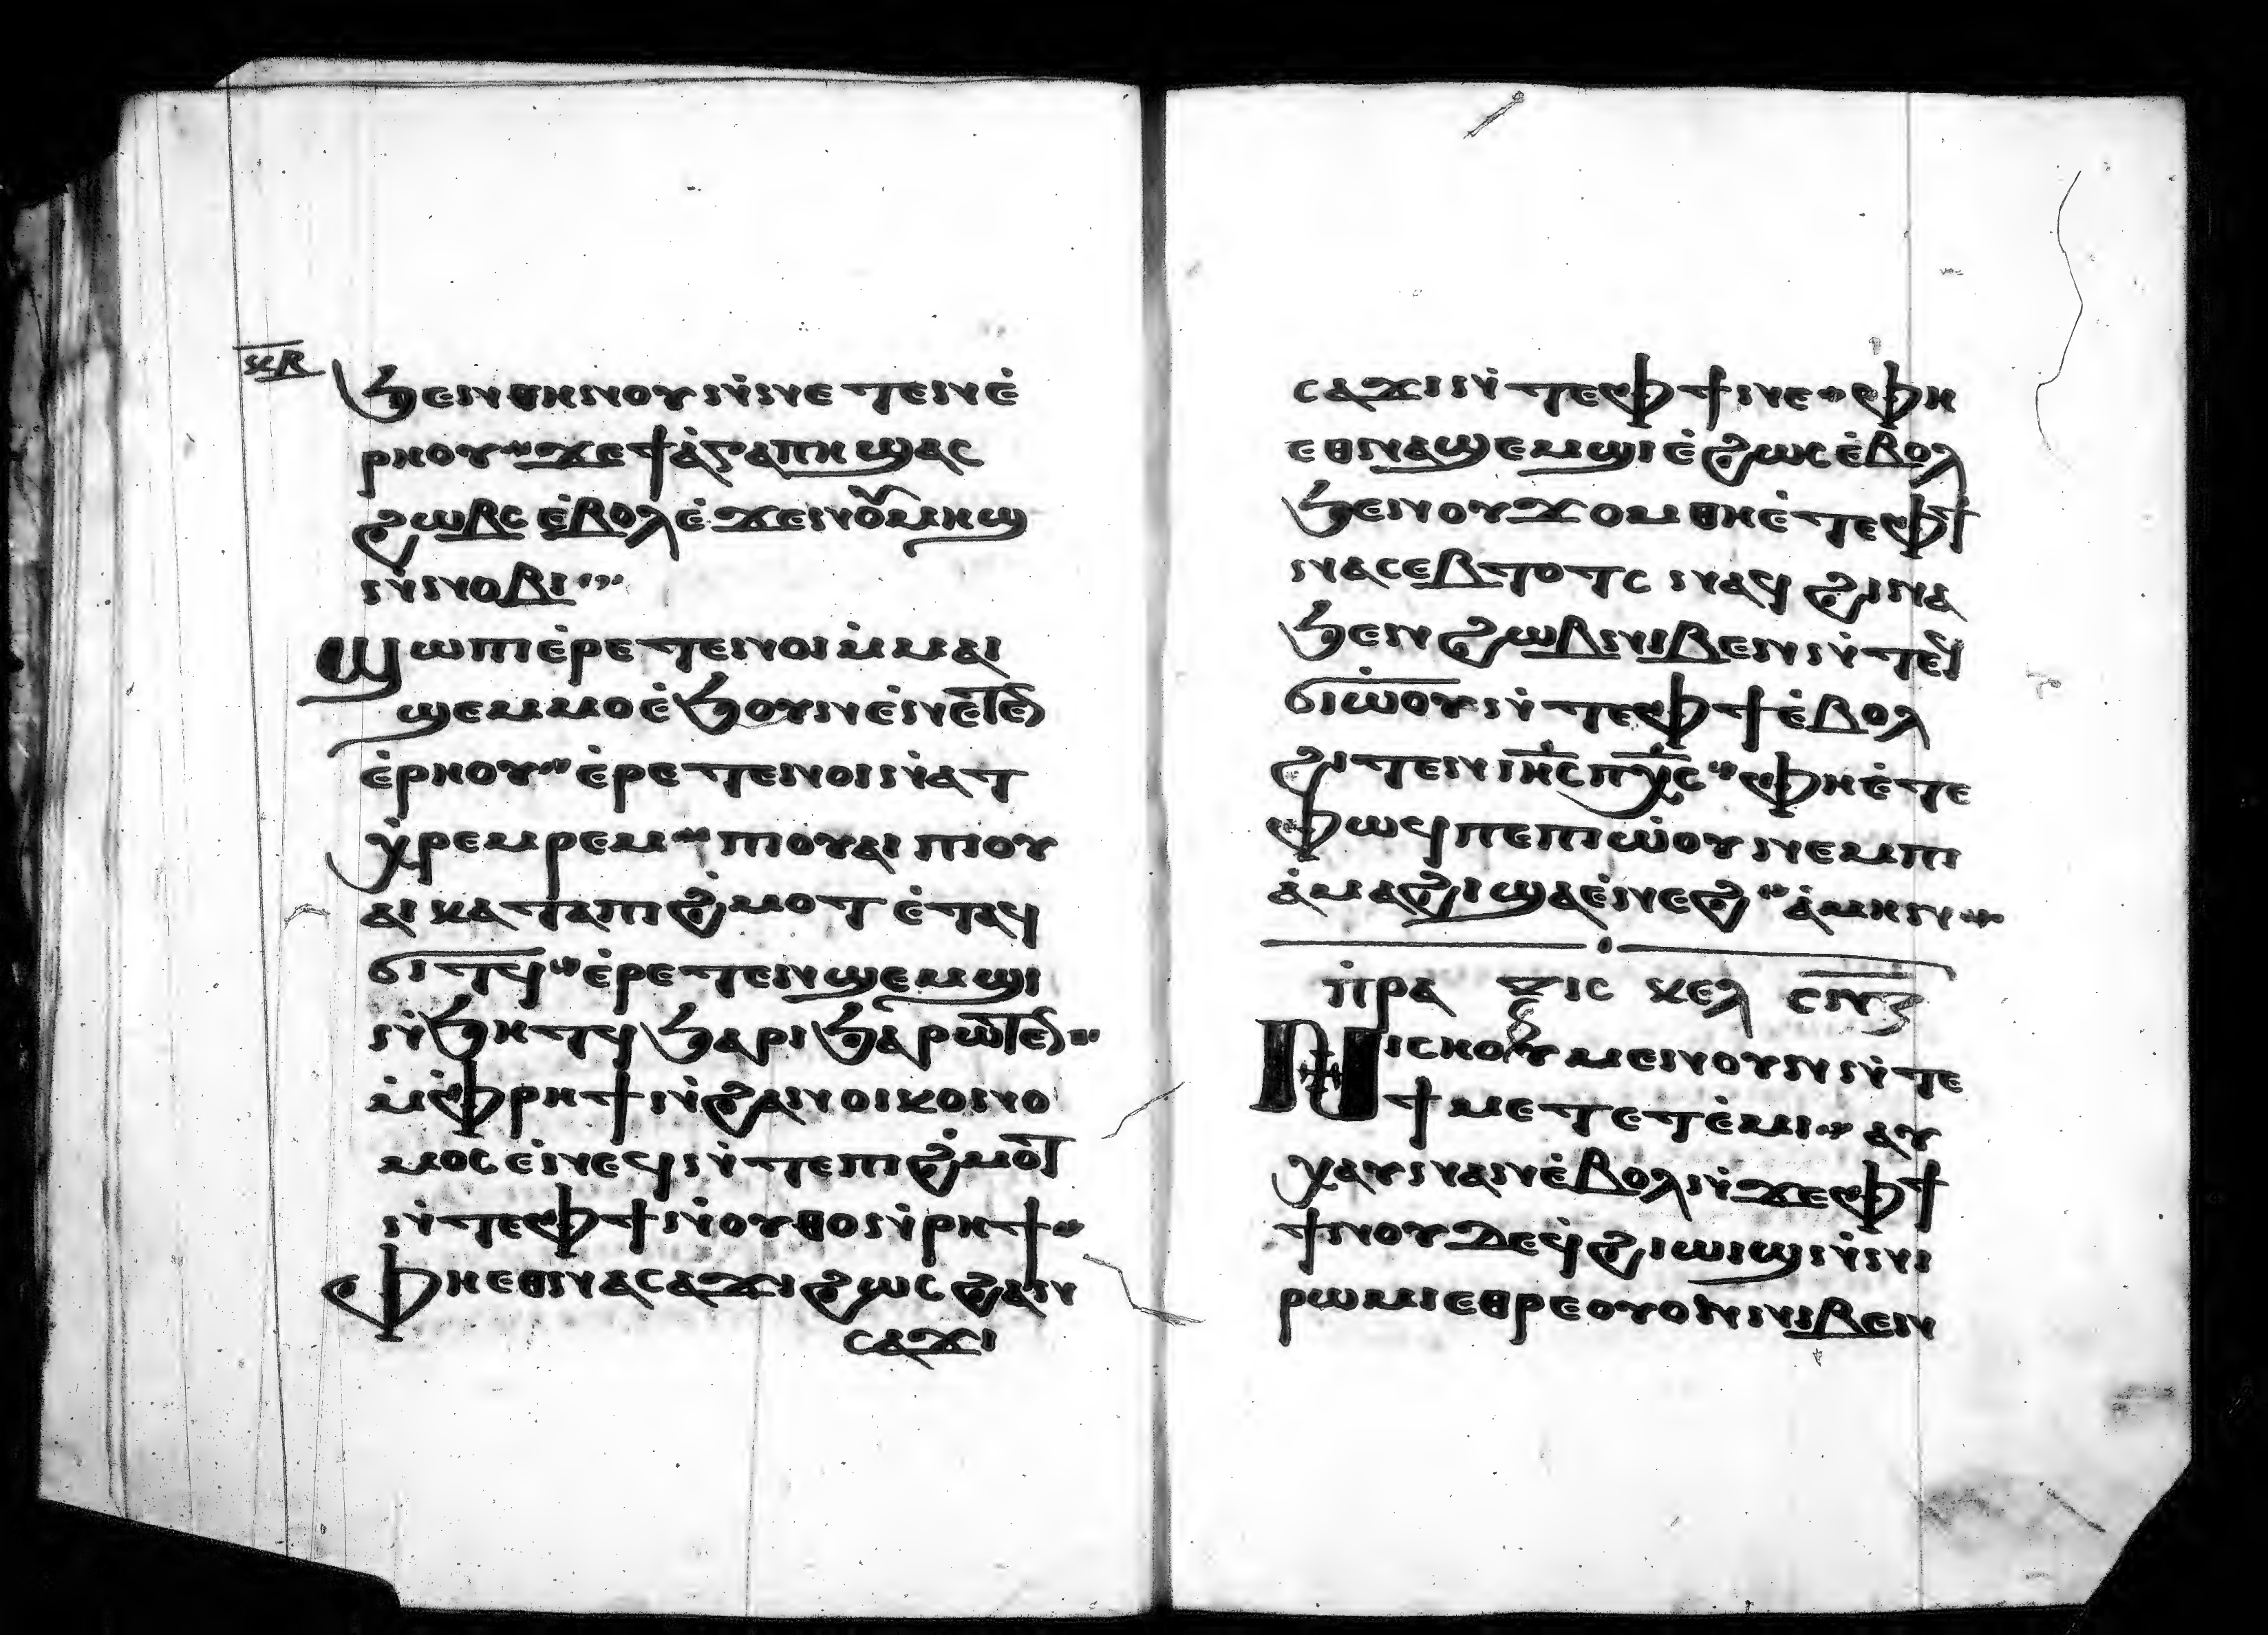 ⲙⲃ
ϧⲉⲛⲑⲏⲛⲟⲩ ⲛ̇ⲛⲉⲧⲉⲛⲉ̇
ⲣⲏⲟⲩ ϫⲉϯⲁ̇ⲅⲁⲡⲏ ϣⲁⲥ
ϩⲱⲃⲥ ⲉ̇ⲃⲟⲗ ⲉ̇ϫⲉⲛⲟⲩ̇ⲙⲏϣ
ⲛ̇ⲛⲟⲃⲓ
ϣⲱⲡⲓ ⲉ̇ⲣⲉⲧⲉⲛⲟⲓ ⲙ̇ⲙⲁⲓ
ϣⲉⲙⲙⲟ ⲉ̇ϧⲟⲩⲛ ⲉ̇ⲛⲉⲧⲉⲛ
ⲉ̇ⲣⲏⲟⲩ ⲉ̇ⲣⲉⲧⲉⲛⲟⲓ ⲛ̇ⲁⲧ
ⲭ̇ⲣⲉⲙⲣⲉⲙ ⲡⲓⲟⲩⲁⲓ ⲡⲓⲟⲩ
ⲁⲓ ⲕⲁⲧⲁ ⲡⲓϩ̇ⲙⲟⲧ ⲉ̇ⲧⲁϥ
ϭⲓⲧϥ ⲉ̇ⲣⲉⲧⲉⲛϣⲉⲙϣⲓ
ⲛ̇ϧⲏⲧϥ ϧⲁⲣⲓϧⲁⲣⲱⲧⲉⲛ
ⲙ̇ⲫ̇ⲣⲏϯ ⲛ̇ϩⲁⲛⲟⲓⲕⲟⲛⲟ
ⲙⲟⲥ ⲉ̇ⲛⲉϥ ⲛ̇ⲧⲉⲡⲓϩ̇ⲙⲟⲧ
ⲛ̇ⲧⲉⲫϯ ⲛ̇ⲟⲩⲑⲟ ⲛ̇ⲣⲏϯ
ⲫⲏ ⲉⲑⲛⲁⲥⲁϫⲓ ϩⲱⲥ ϩⲁⲛ
ⲥⲁϫⲓ
ⲥⲁϫⲓ ⲛ̇ⲧⲉⲫϯ ⲛⲉ ⲫⲏ
ⲉⲑⲛⲁϣⲉⲙϣⲓ ⲉ̇ϩⲱⲥ ⲉ̇ⲃⲟⲗ
ϧⲉⲛⲟⲩϫⲟⲙ ⲑⲏ ⲉ̇ⲧⲉⲫϯ
ⲛⲁⲥⲉⲃⲧⲱⲧⲥ ⲛⲁϥ ϩⲓⲛⲁ
ϧⲉⲛ ϩⲱⲃ ⲛⲓⲃⲉⲛ ⲛ̇ⲧⲉϥ
ϭⲓⲱ̇ⲟⲩ ⲛ̇ⲧⲉⲫϯ ⲉ̇ⲃⲟⲗ
ϩⲓⲧⲉⲛ ⲓⲏⲥ ⲡⲭⲥ ⲫⲏ ⲉ̇ⲧⲉ
ⲫⲱϥ ⲡⲉ ⲡⲓⲱ̇ⲟⲩ ⲛⲉⲙ ⲡⲓ
ⲁ̇ⲙⲁϩⲓ ϣⲁ ⲉ̇ⲛⲉϩ ⲁ̇ⲙⲏⲛ
ⲡ̇ⲣⲁⲝⲓⲥ ⲕⲉⲫ ⲥⲛⲍ
ⲛⲓⲥⲏⲟⲩ ⲙⲉⲛ ⲟⲩⲛ ⲛ̇ⲧⲉ
ϯⲙⲉⲧⲉⲧⲉ̇ⲙⲓ ⲁⲩ
ⲭⲁⲩ ⲛⲁⲛ ⲉ̇ⲃⲟⲗ ⲛ̇ϫⲉⲫϯ
ϯⲛⲟⲩ ⲇⲉ ϥϩⲓⲱⲓϣ ⲛ̇ⲛⲓ
ⲣⲱⲙⲓ ⲉⲑⲣⲉⲟⲩⲟⲛ ⲛⲓⲃⲉⲛ